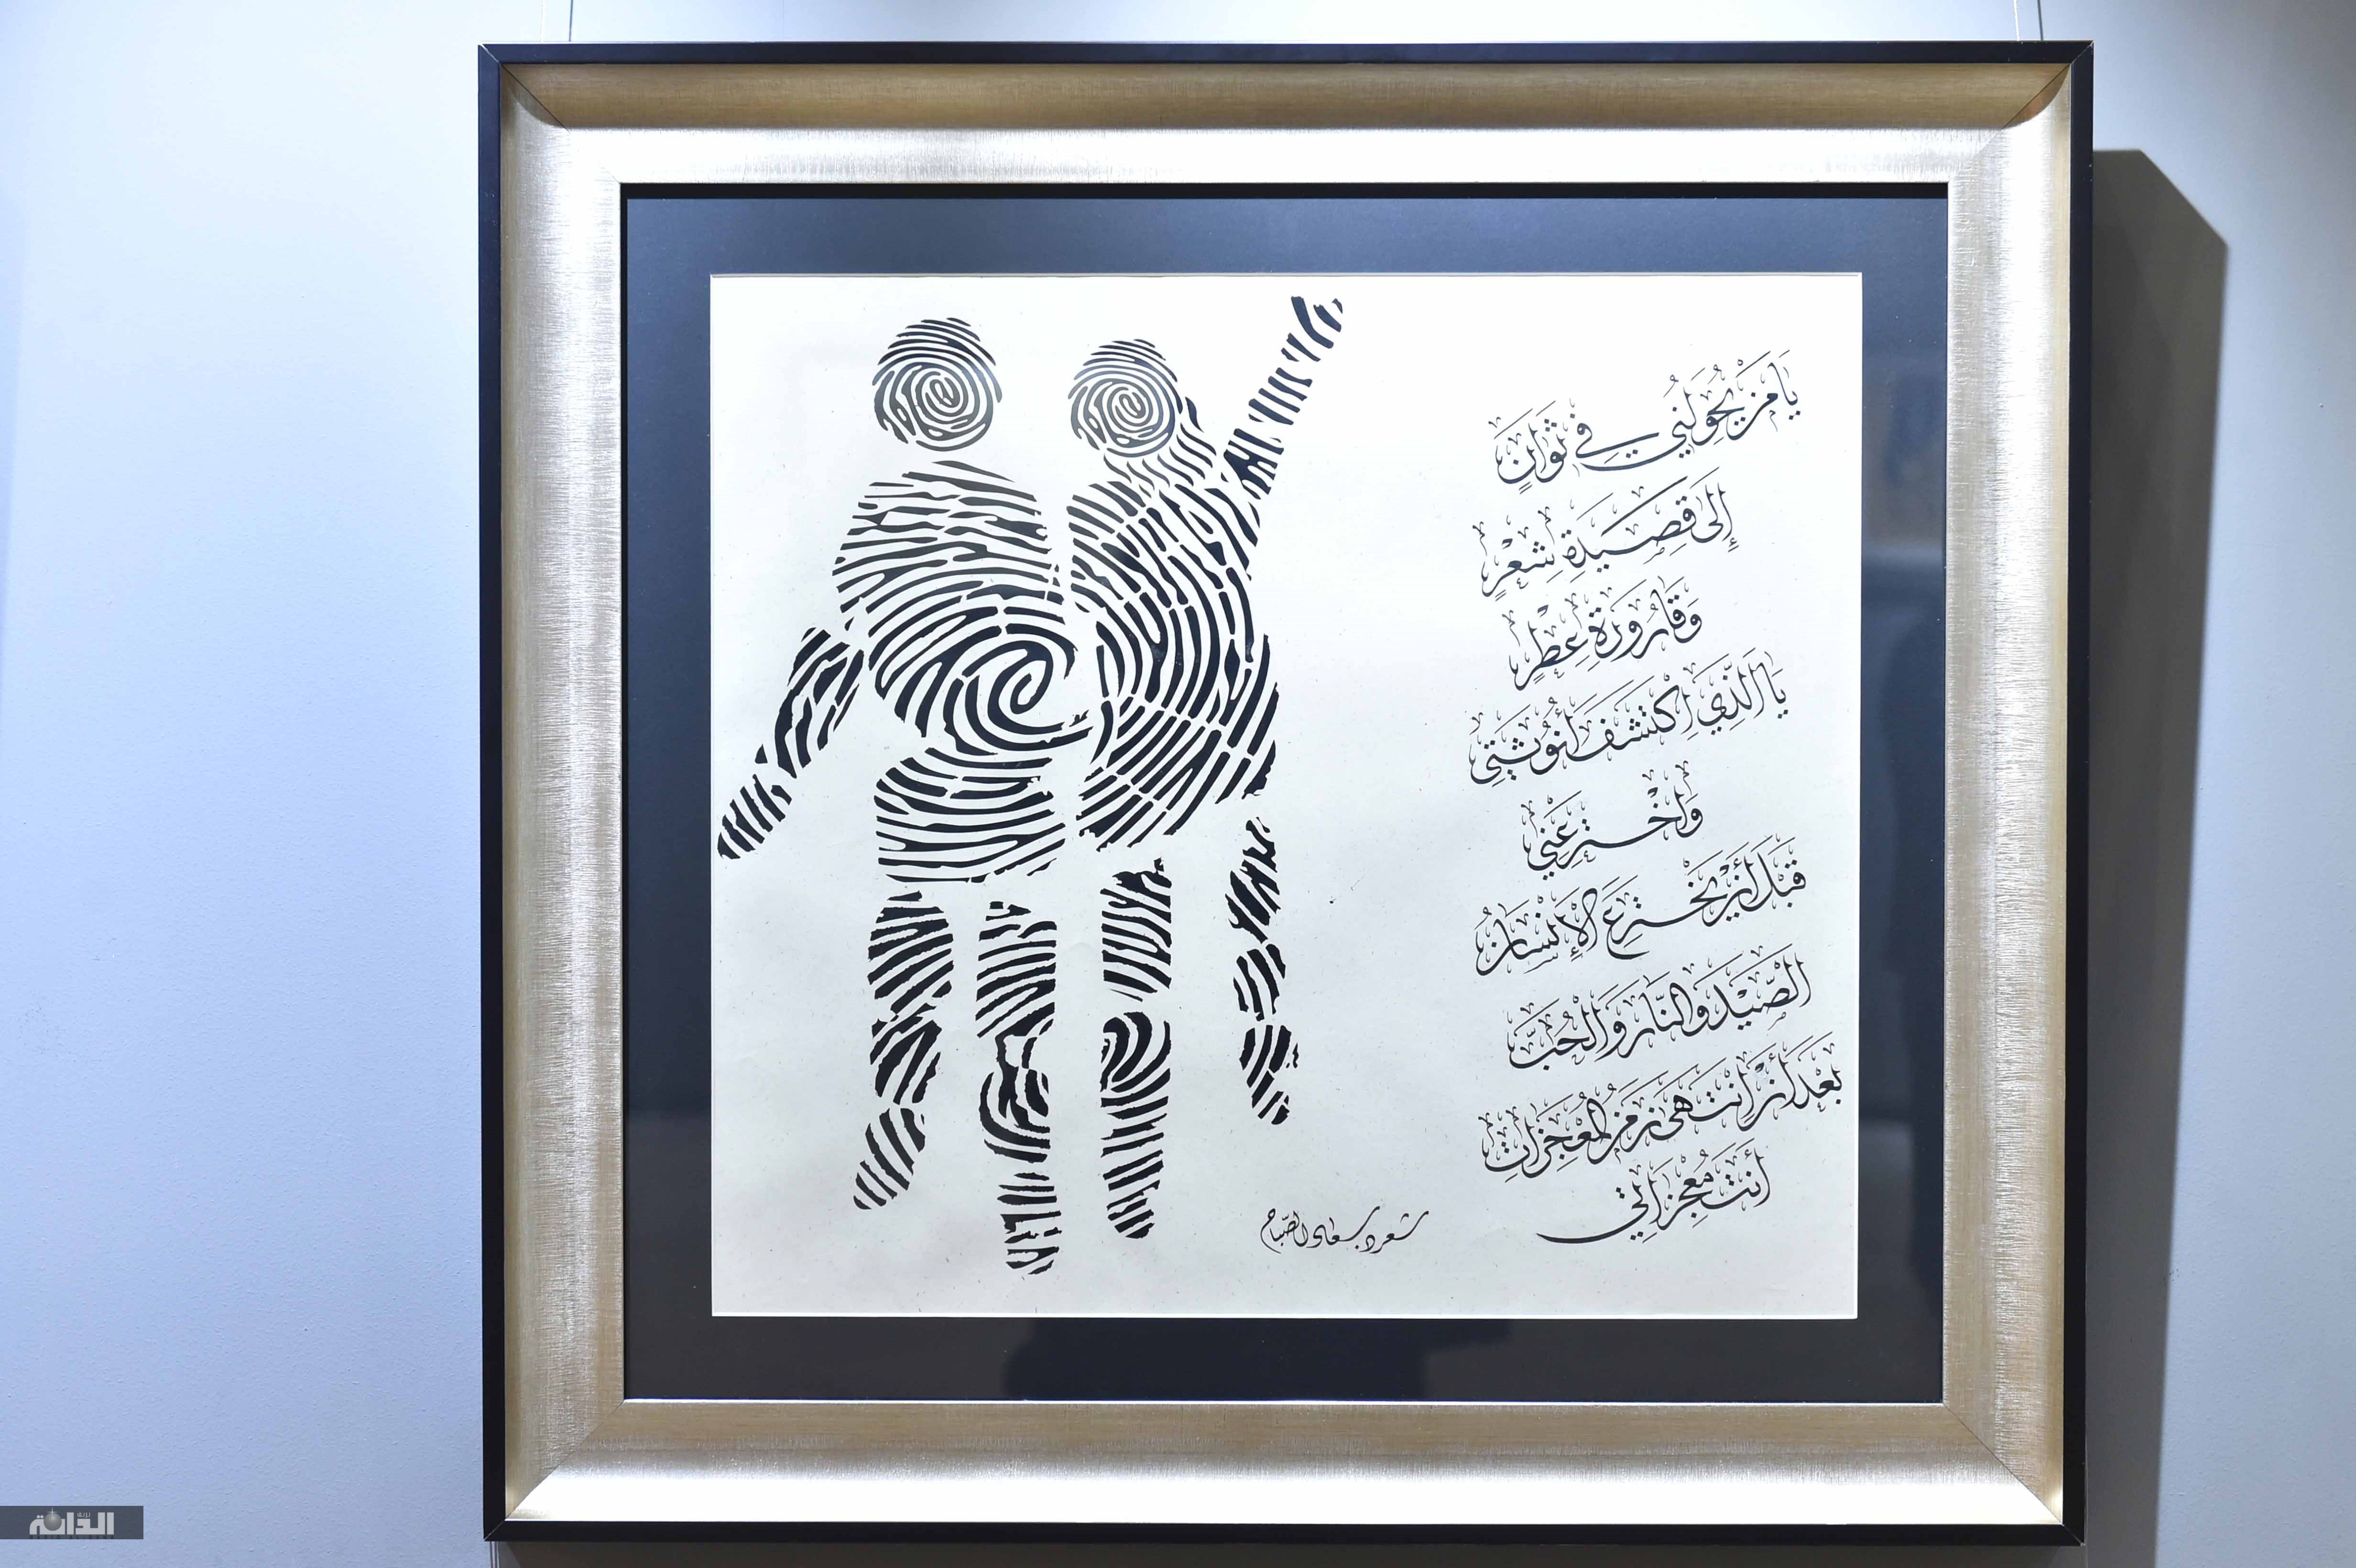 يَا مَنْ يُحَوِّلُنِي فِي ثَوَانٍ
إِلَى قَصِيدَةِ شِعْرٍ
وَقَارُورَةِ عِطْرٍ
يَا الَّذِي اِكْتَشَفَ أُنُوثَتِي
وَاخْتَرَعَنِي
قَبْلَ أَنْ يَخْتَرِعَ الْإِنْسَانُ
الصَّيْدَ وَالنَّارَ وَالْحُبَّ
بَعْدَ أَنْ اِنْتَهَى زَمَنُ الْمُعْجِزَاتِ
أَنْتَ مُعْجِزَاتِي
شعر د. سعاد الصّباح
الدانة